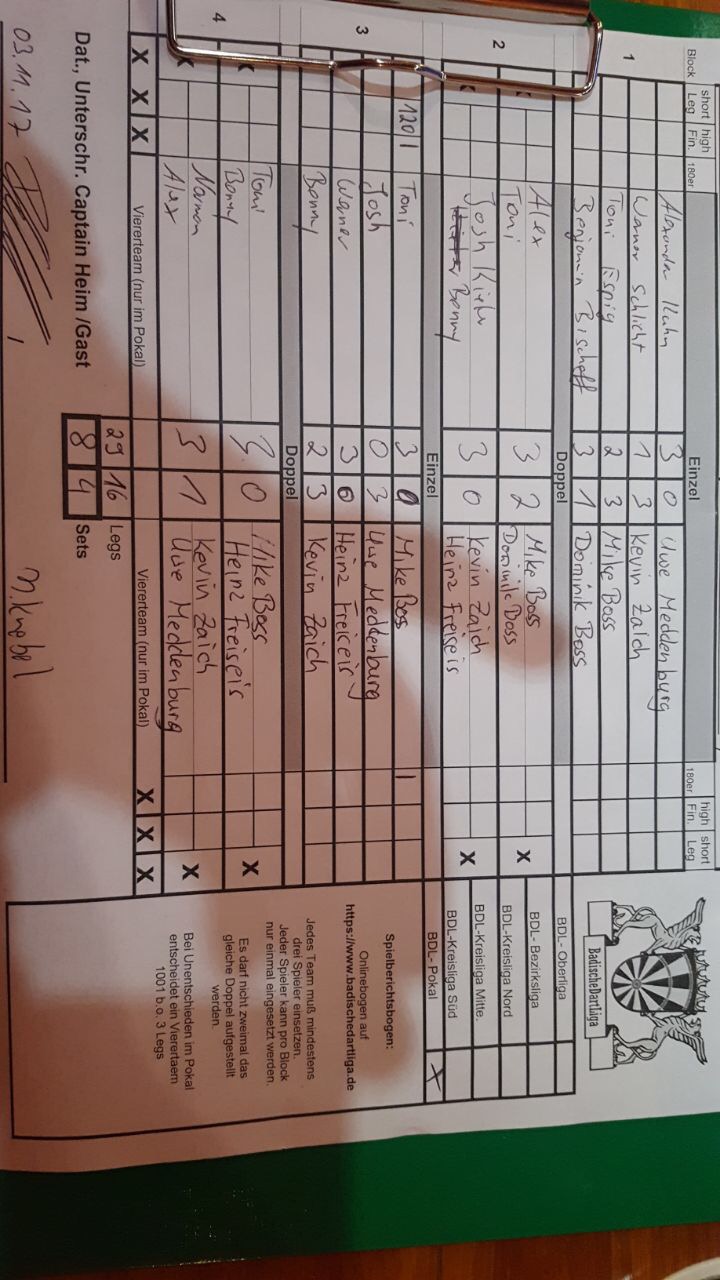 Block short Leg high Fin. 180er Einzel 180er high Fin. short Leg
1 Alexander Kuhn 3 0 Uwe Meddenburg
Warner Schlicht 1 3 Kevin Zaich
Toni Espig 2 3 Mike Boss
Benjamin Bischoff 3 1 Dominik Boss
Doppel
2 Alex 3 2 Mike Boss X
Toni Dominik Boss
Josh Kiehr 3 0 Kevin Zaich X
Benny Heinz Freiseis
Einzel
3 120 1 Toni 3 0 Mike Boss 1
Josh 0 3 Uwe Meddenburg
Warner 3 0 Heinz Freiseis
Benny 2 3 Kevin Zaich
Doppel
4 Toni 3 0 Mike Boss X
Benny Heinz Freiseis
3 1 Kevin Zaich X
Alex Uwe Meddenburg
X X X Viererteam (nur im Pokal) Viererteam (nur im Pokal) X X X
29 16 Legs
Dat., Unterschr. Captain Heim /Gast 8 4 Sets
03.11.17 M. Knebel
BadischeDartLiga
BDL- Oberliga
BDL- Bezirksliga
BDL-Kreisliga Nord
BDL-Kreisliga Mitte.
BDL-Kreisliga Süd
BDL- Pokal X
Spielberichtsbogen:
Onlinebogen auf
https://www.badischedartliga.de
Jedes Team muß mindestens
drei Spieler einsetzen.
Jeder Spieler kann pro Block
nur einmal eingesetzt werden.
Es darf nicht zweimal das
gleiche Doppel aufgestellt
werden.
Bei Unentschieden im Pokal
entscheidet ein Vierertaem
1001 b.o. 3 Legs